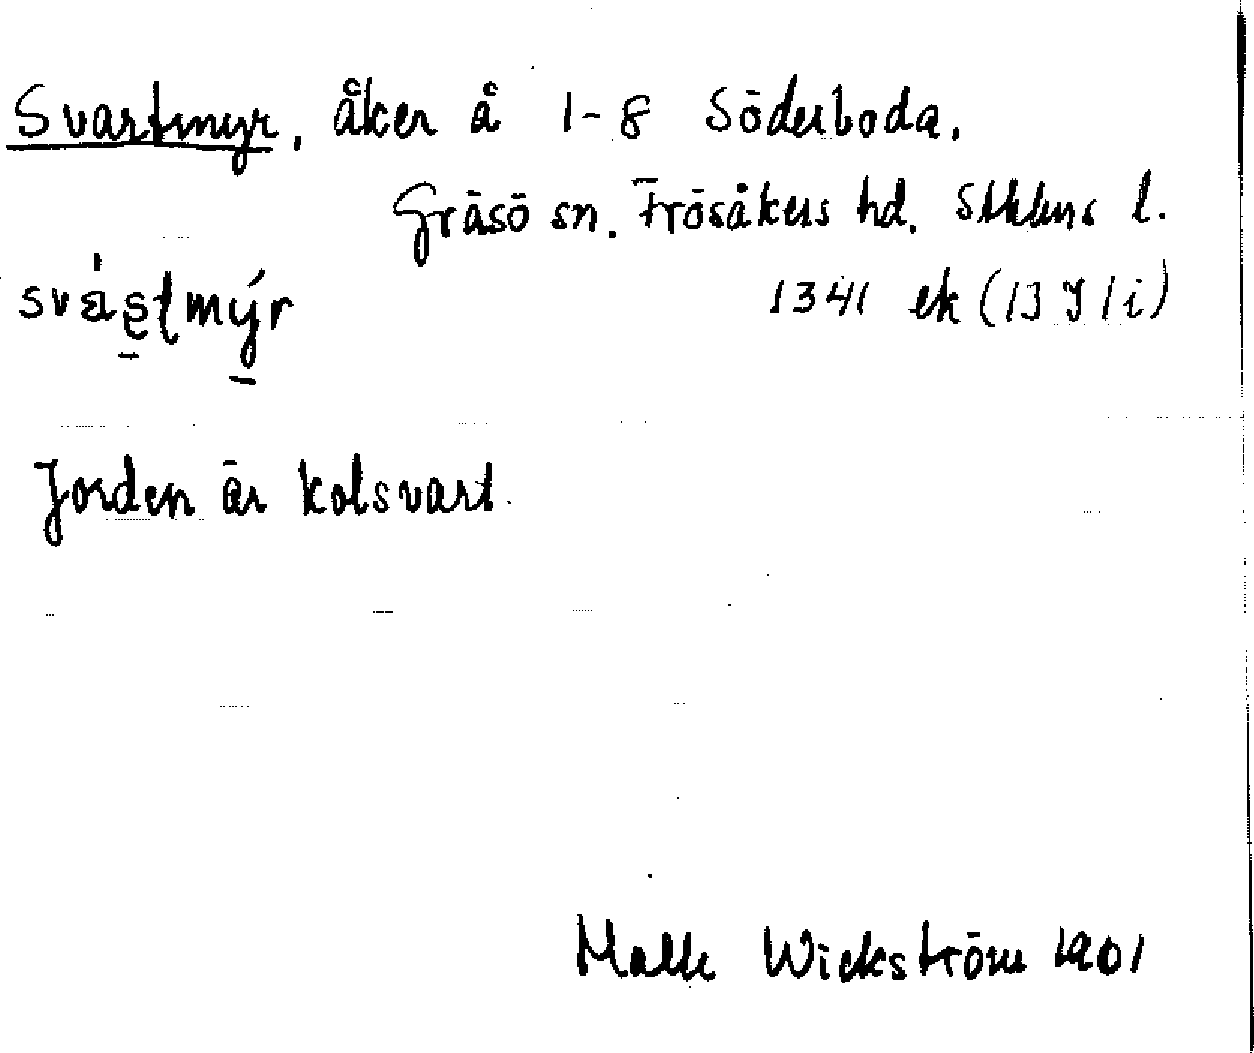 Svartmyr, åker å 1-8 Söderboda.
Gräsö sn. Frösåkers hd. Sthlms l.
1341 ek (13 I 1 i)
Jorden är kolsvart.
Wickström 1901